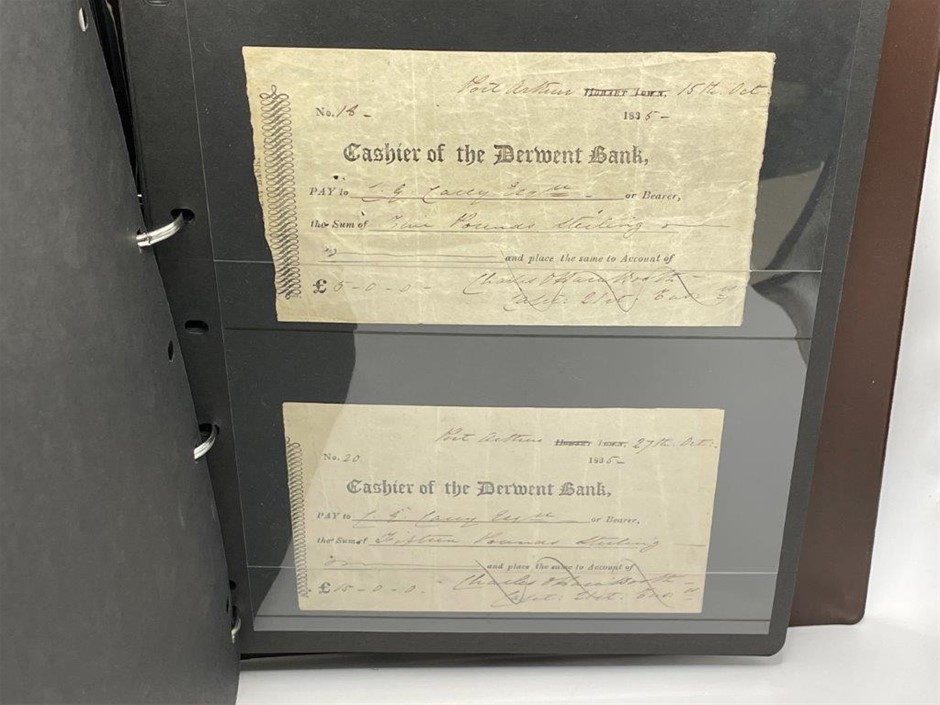 Port Arthur Hobart Town, 15th. Oct
No. 18 - 1835 -
Cashier of the Derwent Bank,
PAY to C. G. Casey Esqre - or Bearer,
the Sum of Five Pounds Sterling
and place the same to Account of
£ 5 - 0 - 0 - Charles O'Hara Booth -
Capt: 21st: Fus:
Port Arthur Hobart Town, 27th. Oct:
No. 20 1835 -
Cashier of the Derwent Bank,
PAY to C. G. Casey Esqre - or Bearer,
the Sum of Fifteen Pounds Sterling
and place the same to Account of
£ 15 - 0 - 0 - Charles O'Hara Booth -
Capt: 21st: Fus: